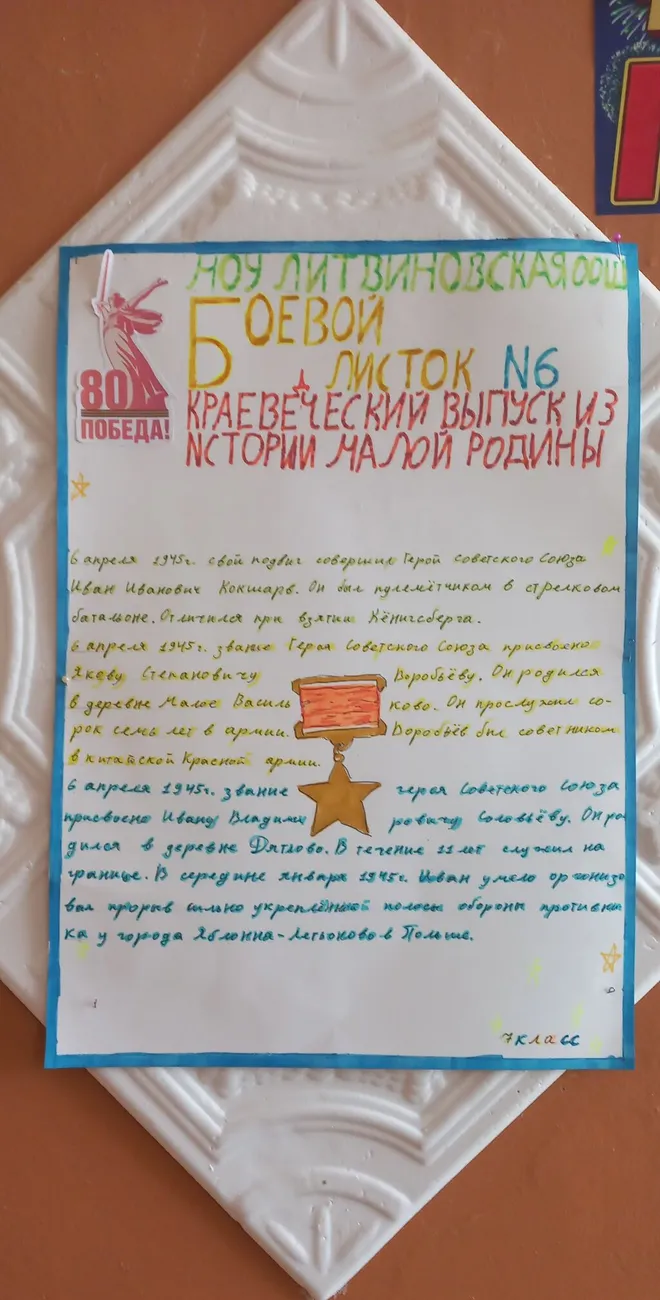 НОУ ЛИТВИНОВСКАЯ ООШ
БОЕВОЙ
ЛИСТОК N6
КРАЕВЕЧЕСКИЙ ВЫПУСК ИЗ
ИСТОРИИ МАЛОЙ РОДИНЫ
80
ПОБЕДА!
6 апреля 1945г. свой подвиг совершил Герой Советского Союза
Иван Иванович Кокшарв. Он был пулемётчиком в стрелковом
батальоне. Отличился при взятии Кёнигсберга.
6 апреля 1945г. звание Героя Советского Союза присвоено
Якову Степановичу Воробьёву. Он родился
в деревне Малое Василь ково. Он прослужил со-
рок семь лет в армии. Воробьёв был советником
в китайской Красной армии.
6 апреля 1945г. звание героя Советского Союза
присвоено Ивану Владими ровичу Соловьёву. Он ро
дился в деревне Дятлово. В течение 11 лет служил на
границе. В середине января 1945г. Иван умело организо
вал прорыв сильно укреплённой полосы обороны противни
ка у города Яблонна-Легьоново в Польше.
7 класс